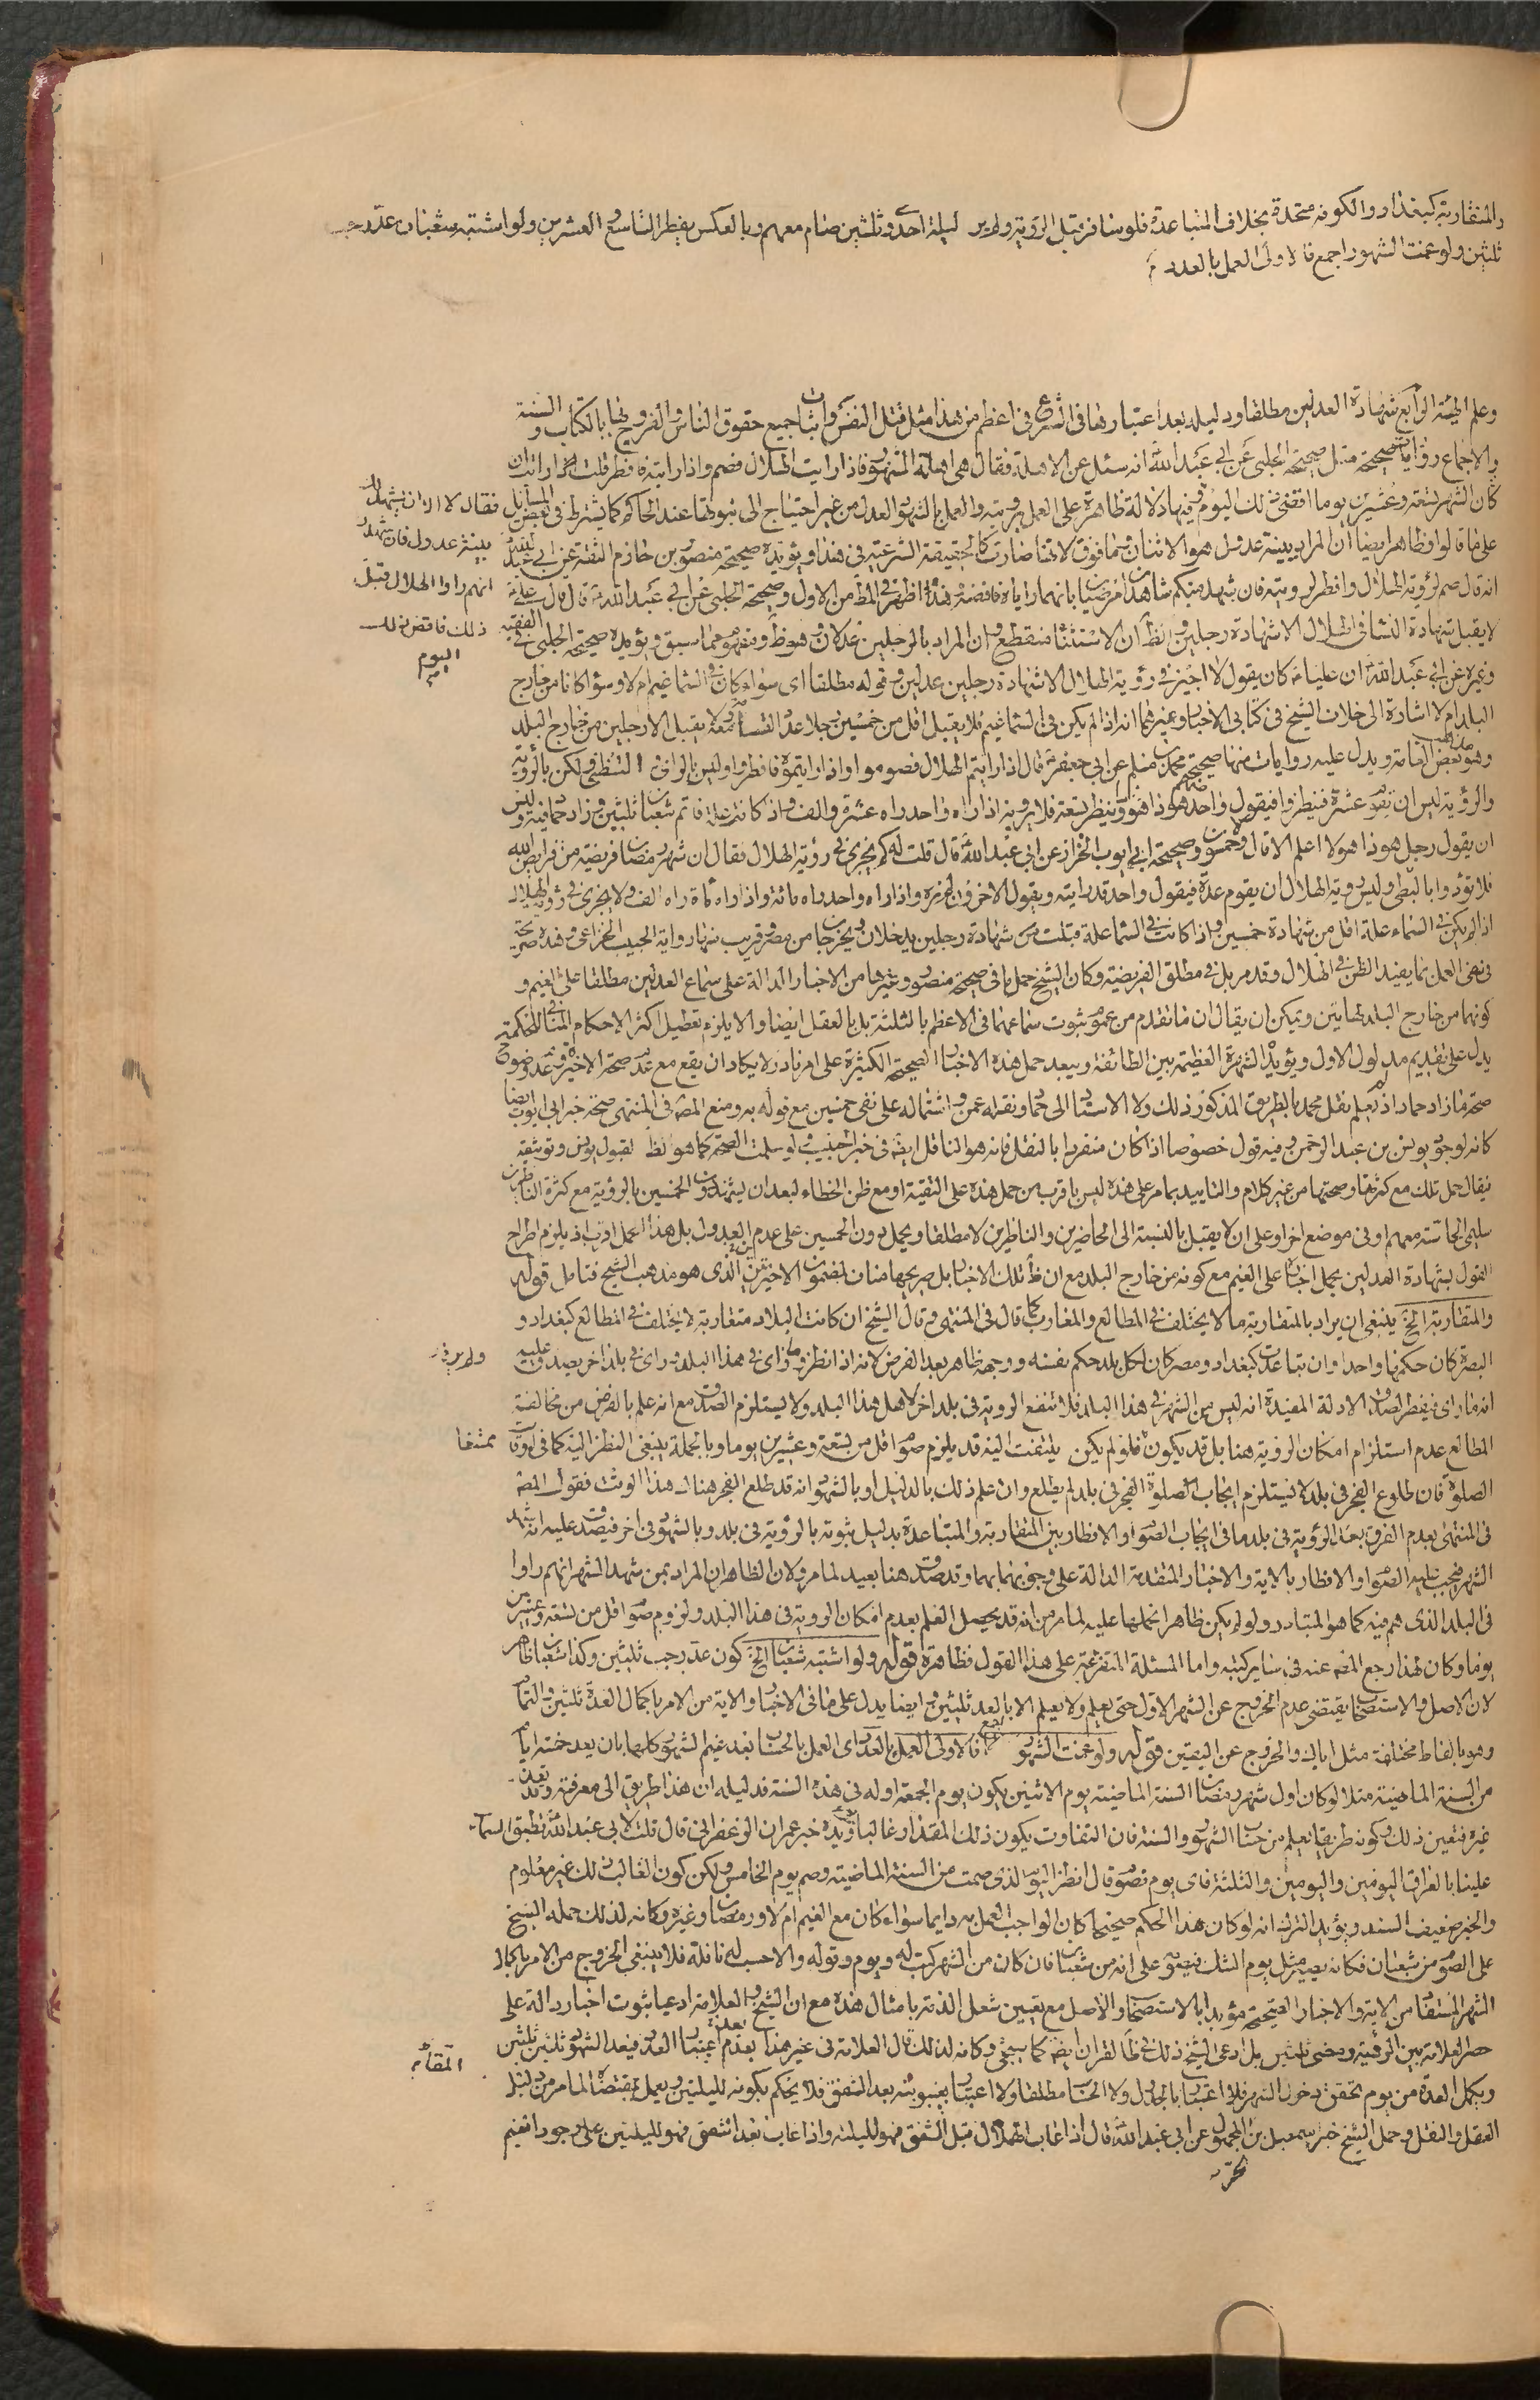 والمتقاربة كبغداد والكوفة متحدة بخلاف المتباعدة فلو سافر قبل الرؤية ولم ير ليلة احدى وثلثين صام معهم وبالعكس يفطر التاسع والعشرين ولو اشتبه شعبان عد رجب
ثلثين ولو غمت الشهور اجمع فالاولى العمل بالعدد
وعلم الجهة الرابع شهادة العدلين مطلقا ودليله بعد اعتبارها في الشرع في اعظم من هذا مثل قتل النفس واثبات جميع حقوق الناس والفروج بالكتاب والسنة
والاجماع روايات صحيحة مثل صحيحة الحلبي عن ابي عبد الله انه سئل عن الاهلة فقال هي اهلة الشهور فاذا رايت الهلال فصم واذا رايته فافطر قلت ارايت ان
كان الشهر تسعة وعشرين يوما اقضي ذلك اليوم وفيها دلالة ظاهرة على العمل برؤيته والعمل بالشهود العدل من غير احتياج الى ثبوتها عند الحاكم كما يشترط في بعض المسائل
فقال لا الا ان يشهد لك
بينة عدول فان شهدوا
انهم راوا الهلال قبل
ذلك فاقض ذلك
اليوم
على ما قالوا فظاهر ايضا ان المراد ببينة عدول هو الاثنان فما فوق لانها صارت كالحقيقة الشرعية في هذا ويؤيده صحيحة منصور بن حازم الثقة عن ابي عبد الله
انه قال صم لرؤية الهلال وافطر لرؤيته فان شهد عندكم شاهدان مرضيان بانهما راياه فاقضه هذه اظهر في المط من الاول وصحيحة الحلبي عن ابي عبد الله قال قال علي
لا يقبل شهادة النساء في الهلال الا شهادة رجلين والظ ان الاستثناء منقطع وان المراد بالرجلين عدلان وهو ظ ومفهوم مما سبق ويؤيده صحيحة الحلبي في الفقيه
وغيره عن ابي عبد الله ان عليا كان يقول لا اجيز في رؤية الهلال الا شهادة رجلين عدلين وقوله مطلقا اى سواء كان في السماء غيم ام لا وسواء كانا من خارج
البلد ام لا اشارة الى خلاف الشيخ في كتابي الاخبار وغيرهما انه اذا لم يكن في السماء غيم فلا يقبل اقل من خمسين رجلا عدد القسامة ومعه لا يقبل الا رجلين من خارج البلد
وهو مذهب بعض العامة ويدل عليه روايات منها صحيحة محمد بن مسلم عن ابي جعفر قال اذا رايتم الهلال فصوموا واذا رايتموه فافطروا وليس بالراى والتظني ولكن بالرؤية
والرؤية ليس ان يقوم عشرة فينظروا فيقول واحد منهم هو ذا هو وينظر تسعة فلا يرونه اذا راه واحد راه عشرة والف واذا كانت علة فاتم شعبان ثلثين وزاد حماد فيه وليس
ان يقول رجل هو ذا هو لا اعلم الا قال وخمسون وصحيحة ابي ايوب الخزاز عن ابي عبد الله قال قلت له كم يجزي في رؤية الهلال فقال ان شهر رمضان فريضة من فرايض الله
فلا تؤدوا بالتظني وليس رؤية الهلال ان يقوم عدة فيقول واحد قد رايته ويقول الاخرون لم نره واذا راه واحد راه مائة واذا راه مائة راه الف ولا يجزي في رؤية الهلال
اذا لم يكن في السماء علة اقل من شهادة خمسين واذا كانت في السماء علة قبلت شهادة رجلين يدخلان ويخرجان من مصر وقريب منها رواية الحبيب الخزاعي وهذه صريحة
في نفي العمل بما يفيد الظن في الهلال وقد مر بل في مطلق الفريضة وكان الشيخ حمل ما في صحيحة منصور وغيرها من الاخبار الدالة على سماع العدلين مطلقا على الغيم و
كونهما من خارج البلد لهاتين ويمكن ان يقال ان ما تقدم من عموم ثبوت سماعهما في الاعظم بالثلثة بل بالعقل ايضا والا يلزم تعطيل اكثر الاحكام
يدل على تقديم مدلول الاول ويؤيده الشهرة العظيمة بين الطائفة ويبعد حمل هذه الاخبار الصحيحة الكثيرة على امر نادر لا يكاد ان يقع مع عدم صحة الاخيرة وعدم وضوح
صحة ما زاد حماد اذ لم يعلم نقل محمد بالطريق المذكور ذلك ولا الاستناد الى حماد ونقله عمن واشتماله على نفي خمسين مع قوله به ومنع المصه في المنتهى صحة خبر ابي ايوب ايضا
كانه لوجود يونس بن عبد الرحمن وفيه قول خصوصا اذا كان منفردا بالنقل فانه هو الناقل ايضه في خبر الحبيب ولو سلمت الصحة كما هو الظ لقبول يونس وتوثيقه
فيقال حمل تلك مع كثرتها وصحتها من غير كلام والتاييد بما مر على هذه ليس باقرب من حمل هذه على التقية او مع ظن الخطاء لبعد ان يشهد دون الخمسين بالرؤية مع كثرة الناظرين
سليمي الحاسة معهم او في موضع اخر او على ان لا يقبل بالنسبة الى الحاضرين والناظرين لا مطلقا ويحمل دون الخمسين على عدم العدول بل هذا الحمل اقرب اذ يلزم اطراح
القول بشهادة العدلين بحمل اخباره على الغيم مع كونه من خارج البلد مع ان ظ تلك الاخبار بل صريحها مناف لمضمون الاخيرتين الذي هو مذهب الشيخ فتامل قوله
والمتقاربة الخ ينبغي ان يراد بالمتقاربة ما لا يختلف في المطالع والمغارب كما قال في المنتهى وقال الشيخ ان كانت البلاد متقاربة لا يختلف في المطالع كبغداد و
البصرة كان حكمها واحدا وان تباعدت كبغداد ومصر كان لكل بلد حكم نفسه ووجهه ظاهر بعد الفرض لانه اذا نظر وما راى في هذا البلد وراى في بلد اخر يصدق عليه
ولم ير في
انه ما راى فيفطر لصدق الادلة المفيدة انه ليس من الشهر في هذا البلد فلا تنفع الرؤية في بلد اخر لاهل هذا البلد ولا يستلزم الصدق مع انه علم بالفرض من مخالفة
المطالع عدم استلزام امكان الرؤية هنا بل قد يكون ممتنعا فلو لم يكن يلتفت اليه قد يلزم صوم اقل من تسعة وعشرين يوما وبالجملة ينبغي النظر اليه كما في اوقات
الصلوة فان طلوع الفجر في بلد لا يستلزم ايجاب الصلوة الفجر في بلد لم يطلع وان علم ذلك بالدليل او بالشهود انه قد طلع الفجر هناك هذا الوقت فقول المصه
في المنتهى بعدم الفرق بعد الرؤية في بلد ما في ايجاب الصوم والافطار بين المتقاربة والمتباعدة بدليل ثبوته بالرؤية في بلد وبالشهود في اخر فيصدق عليه انه شهد
الشهر فيجب عليه الصوم والافطار بالاية والاخبار المتقدمة الدالة على وجوبهما بهما وقد صدق هنا بعيد لما مر ولان الظاهر ان المراد بمن شهد الشهر انهم راوا
في البلد الذي هم فيه كما هو المتبادر ولو لم يكن ظاهرا نحملها عليه لما مر من انه قد يحصل العلم بعدم امكان الرؤية في هذا البلد ولزوم صوم اقل من تسعة وعشرين
يوما وكان لهذا رجع المصه عنه في ساير كتبه واما المسئلة المتفرعة على هذا القول فظاهرة قوله ولو اشتبه شعبان الخ كون عد رجب ثلثين وكذا شعبان ظاهر
لان الاصل والاستصحاب يقتضي عدم الخروج عن الشهر الاول حتى يعلم ولا يعلم الا بالعدد ثلثين وايضا يدل على ما في الاخبار والاية من الامر باكمال العدة ثلثين
وهو بالفاظ مختلفة مثل اياك والخروج عن اليقين قوله ولو غمت الشهور اجمع فالاولى العمل بالعدد اى العمل بالحساب بعد غيم الشهور كلها بان يعد خمسة ايام
من السنة الماضية مثلا لو كان اول شهر رمضان السنة الماضية يوم الاثنين يكون يوم الجمعة اوله في هذه السنة فدليله ان هذا طريق الى معرفته وتعذر
غيره فتعين ذلك وكونه طريقا يعلم من حساب الشهور والسنة فان التفاوت يكون ذلك المقدار غالبا ويؤيده خبر عمران الزعفراني قال قلت لابي عبد الله تطبق السماء
علينا بالعراق اليومين واليومين والثلثة فاى يوم نصوم قال انظر اليوم الذي صمت من السنة الماضية وصم يوم الخامس ولكن كون الغالب ذلك غير معلوم
والخبر ضعيف السند ويؤيد الترك انه لو كان هذا الحكم صحيحا كان الواجب العمل به دايما سواء كان مع الغيم ام لا ورمضان وغيره وكانه لذلك حمله الشيخ
على الصوم من شعبان فكانه يصير مثل يوم الشك فيصوم على انه من شعبان فان كان من الشهر كتب له ويوم وقوله والا حسب له نافلة فلا ينبغي الخروج من الامر باكمال
الشهر المستفاد من الاية والاخبار الصحيحة مؤيدا بالاستصحاب والاصل مع تعيين شغل الذمة بامثال هذه مع ان الشيخ والعلامة ادعيا ثبوت اخبار دالة على
حصر العلامة بين الرؤية ومضي ثلثين بل ادعى الشيخ ذلك في ظ القران ايضه كما سيجئ وكانه لذلك قال العلامة في غير هذا بعدم اعتبار العدد فيعد الشهور ثلثين ثلثين
المتقدمة
ويكمل العدة من يوم تحقق دخول الشهر فلا اعتبار بالجدول ولا الحساب مطلقا ولا اعتبار بغيبوبته بعد الشفق فلا يحكم بكونه لليلتين ويعمل بمقتضاه لما مر من دليل
العقل والنقل وحمل الشيخ خبر اسمعيل بن الحر المجهول عن ابي عبد الله قال اذا غاب الهلال قبل الشفق فهو لليلته واذا غاب بعد الشفق فهو لليلتين على وجود الغيم